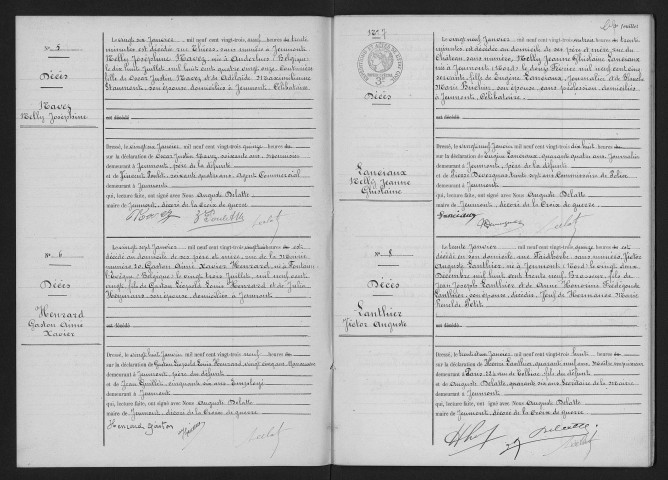 N° 5
Décès
Navez
Nelly Joséphine
Le vingt six Janvier, mil neuf cent vingt-trois, neuf heures trente
minutes est décédée rue Thiers, sans numéro à Jeumont
Nelly Joséphine Navez, née à Anderlues (Belgique)
le dix huit Juillet, mil huit cent quatre vingt onze, Couturière
fille de Oscar Justin Navez, et de Adélaïde Maximilienne
son épouse, domiciliés à Jeumont, Célibataire
est décédé
Dressé, le vingt six Janvier, mil neuf cent vingt-trois, quinze heures
sur la déclaration de Oscar Justin Navez, soixante ans, Menuisier
demeurant à Jeumont, père de la défunte
et de Vincent Poulet, soixante quatre ans, Agent Commercial
demeurant à Jeumont
qui, lecture faite, ont signé avec Nous Auguste Delatte
maire de Jeumont, décoré de la Croix de guerre
N° 6
Décès
Henrard
Gaston Aimé
Xavier
Le vingt sept Janvier, mil neuf cent vingt-trois, vingt heures est
décédé au domicile de ses père et mère, rue de la Mairie,
numéro 20, Gaston Aimé Xavier Henrard, né à Fontaine
l'Évêque (Belgique) le vingt trois Juillet, mil neuf cent
vingt, fils de Gaston Léopold Louis Henrard et de Julia
son épouse, domiciliés à Jeumont
est décédé
Dressé, le vingt huit Janvier, mil neuf cent vingt-trois, neuf heures
sur la déclaration de Gaston Léopold Louis Henrard, vingt cinq ans
demeurant à Jeumont, père du défunt
et de Jean Guillet, cinquante six ans, Employé
demeurant à Jeumont
qui, lecture faite, ont signé avec Nous Auguste Delatte
maire de Jeumont, décoré de la Croix de guerre
Henrard Gaston
feuillet
N° 7
Décès
Lanciaux
Nelly Jeanne
Ghislaine
Le vingt neuf Janvier, mil neuf cent vingt-trois, heures trente
minutes est décédée au domicile de ses père et mère, rue du
Château, sans numéro, Nelly Jeanne Ghislaine Lanciaux
née à Jeumont (Nord) le douze Février mil neuf cent cinq
fille de Eugène Lanciaux, Journalier et de
Marie son épouse, sans profession, domiciliés
à Jeumont, Célibataire
est décédé
Dressé, le vingt neuf Janvier, mil neuf cent vingt-trois, dix huit heures
sur la déclaration de Eugène Lanciaux, quarante quatre ans, Journalier
demeurant à Jeumont, père de la défunte
et de Pierre trente sept ans, Commissaire de Police
demeurant à Jeumont
qui, lecture faite, ont signé avec Nous Auguste Delatte
maire de Jeumont, décoré de la Croix de guerre
Lanciaux
N° 8
Décès
Lanthier
Victor Auguste
Le trente Janvier, mil neuf cent vingt-trois, heures est
décédé en son domicile, rue Faidherbe, sans numéro, Victor
Auguste Lanthier, né à Jeumont (Nord) le onze
Décembre mil huit cent Brasseur, fils de
Jean Joseph Lanthier et de Anne Honorine Frédégonde
Lanthier, son épouse, décédés, Veuf de Hermance Marie
Petit
est décédé
Dressé, le trente et un Janvier, mil neuf cent vingt-trois, huit heures
sur la déclaration de Henri Lanthier, quarante neuf ans
demeurant à Paris, rue de fils du défunt
et de Auguste Delatte, quarante six ans, Secrétaire de la Mairie
demeurant à Jeumont
qui, lecture faite, ont signé avec Nous Auguste Delatte
maire de Jeumont, décoré de la Croix de guerre